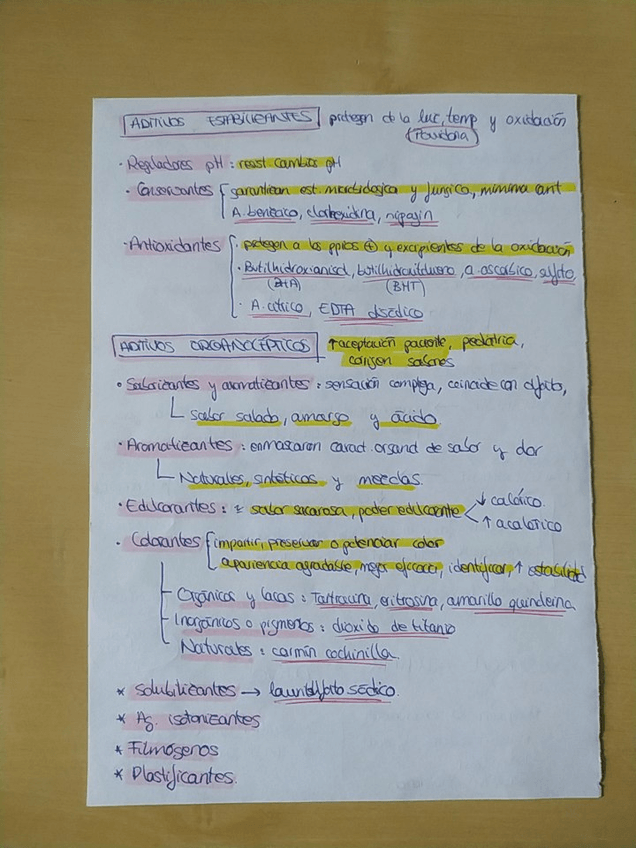 ADITIVOS ESTABILIZANTES protegen de la luz, temp y oxidación
(Povidona)
· Reguladores pH : resist. cambios pH
· Conservantes garantizan est. microbiologica y fungica, minima cant
A. benzoico, clorhexidina, nipagin
· Antioxidantes · protegen a los ppios (+) y excipientes de la oxidación
· Butilhidroxianisol, butilhidroxitolueno, a. ascorbico, sulfito
(BHA) (BHT)
· A. cítrico, EDTA disódico
ADITIVOS ORGANOLÉPTICOS ↑ aceptación paciente, pediatria,
corrigen sabores
· Saborizantes y aromatizantes : sensación compleja, coincide con
sabor salado, amargo y ácido
· Aromatizantes : enmascaran caract. organol de sabor y olor
Naturales, sintéticos y mezclas.
· Edulcorantes : sabor sacarosa, poder edulcorante ↓ calórico
↑ acalorico
· Colorantes impartir, preservar o potenciar color
apariencia agradable, mejor eficacia, identificar, ↑ estabilidad
Orgánicos y lacas : Tartracina, eritrosina, amarillo quinoleina
Inorgánicos o pigmentos : dióxido de titanio
Naturales : carmín cochinilla
* Solubilizantes → laurilsulfato sódico.
* Ag. isotonizantes
* Filmógenos
* Plastificantes.